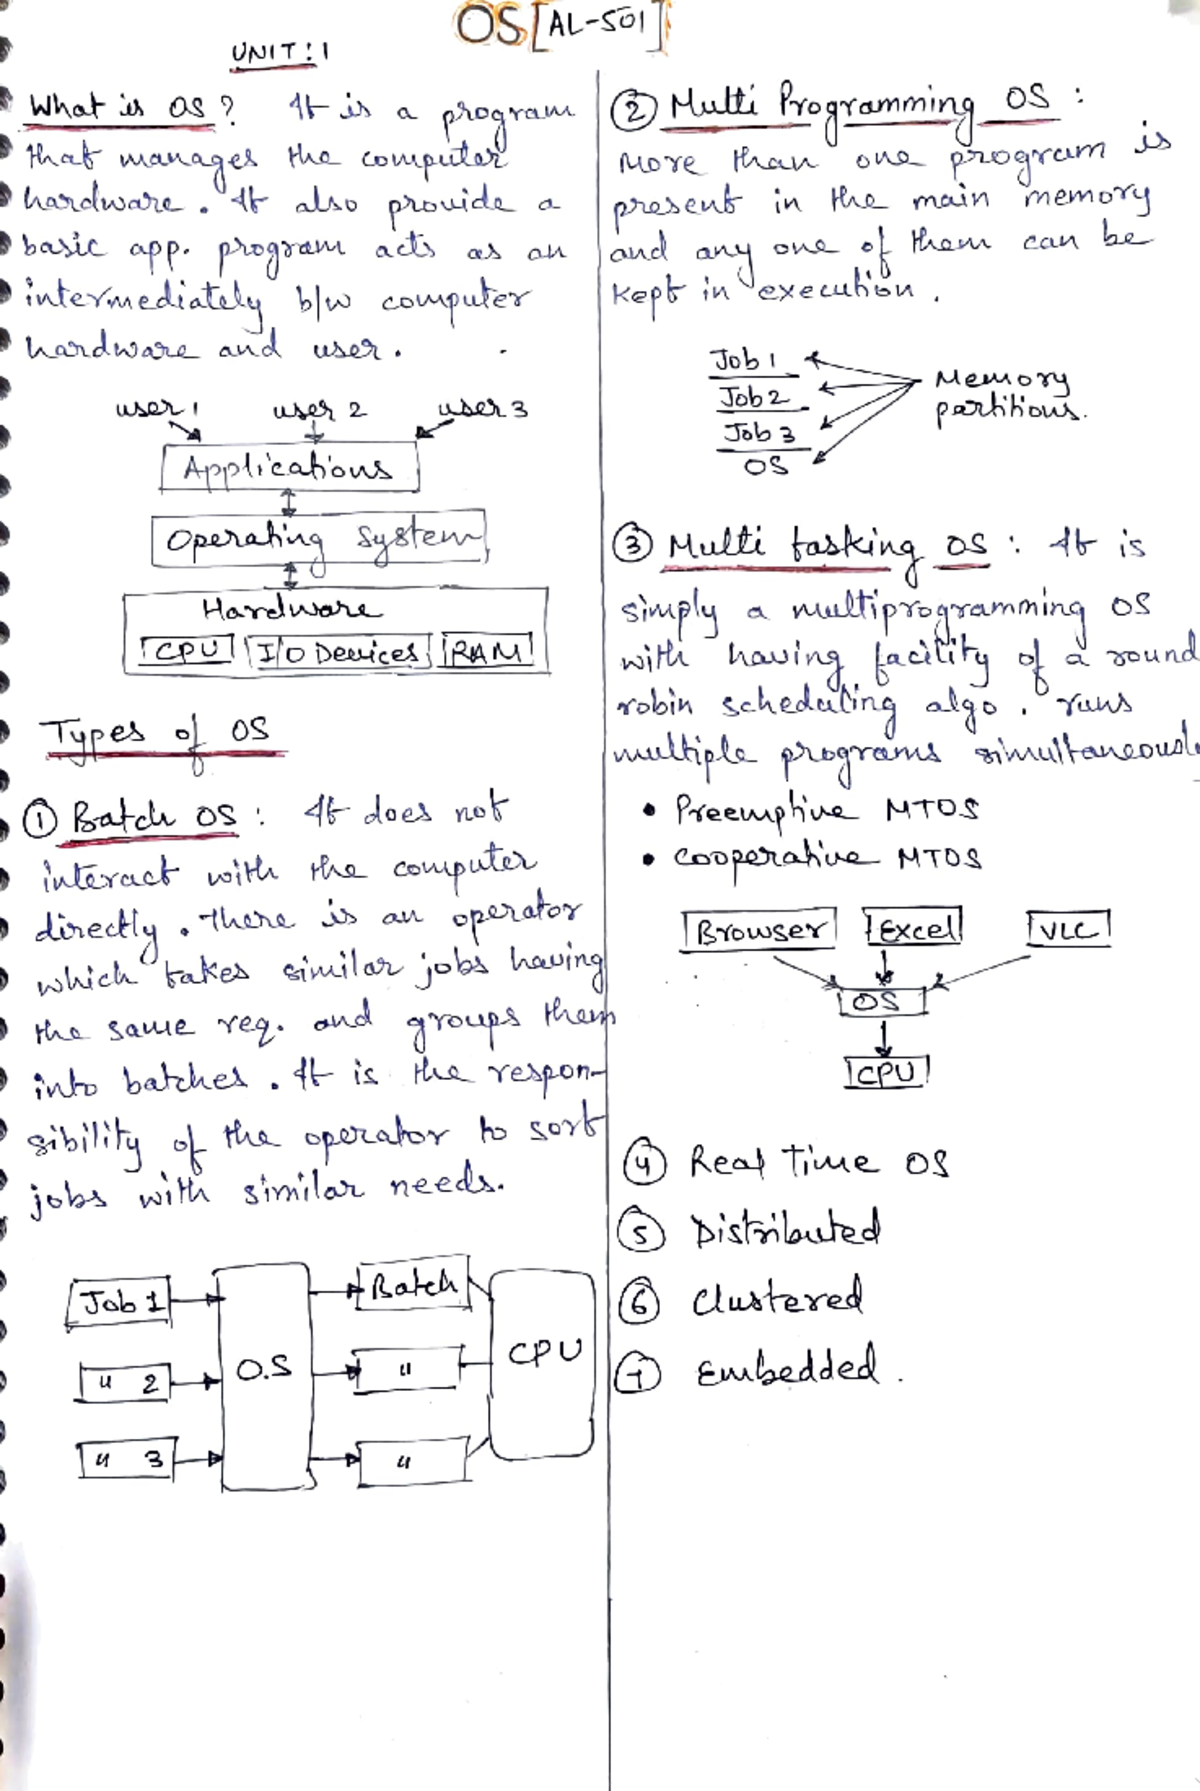 OS [AL-501]
UNIT : 1
What is OS? It is a program
that manages the computer
hardware. It also provide a
basic app. program acts as an
intermediately b/w computer
hardware and user.
user 1 user 2 user 3
Applications
Operating System
Hardware
CPU I/O Devices RAM
Types of OS
① Batch OS : It does not
interact with the computer
directly. There is an operator
which takes similar jobs having
the same req. and groups them
into batches. It is the respon-
sibility of the operator to sort
jobs with similar needs.
Job 1 Batch
O.S CPU
" 2 "
" 3 "
② Multi Programming OS :
More than one program is
present in the main memory
and any one of them can be
kept in execution.
Job 1
Job 2
Job 3
OS
Memory
partitions.
③ Multi tasking OS : It is
simply a multiprogramming OS
with having facility of a round
robin scheduling algo. runs
multiple programs simultaneousl
• Preemptive MTOS
• Cooperative MTOS
Browser Excel VLC
OS
CPU
④ Real Time OS
⑤ Distributed
⑥ Clustered
⑦ Embedded.